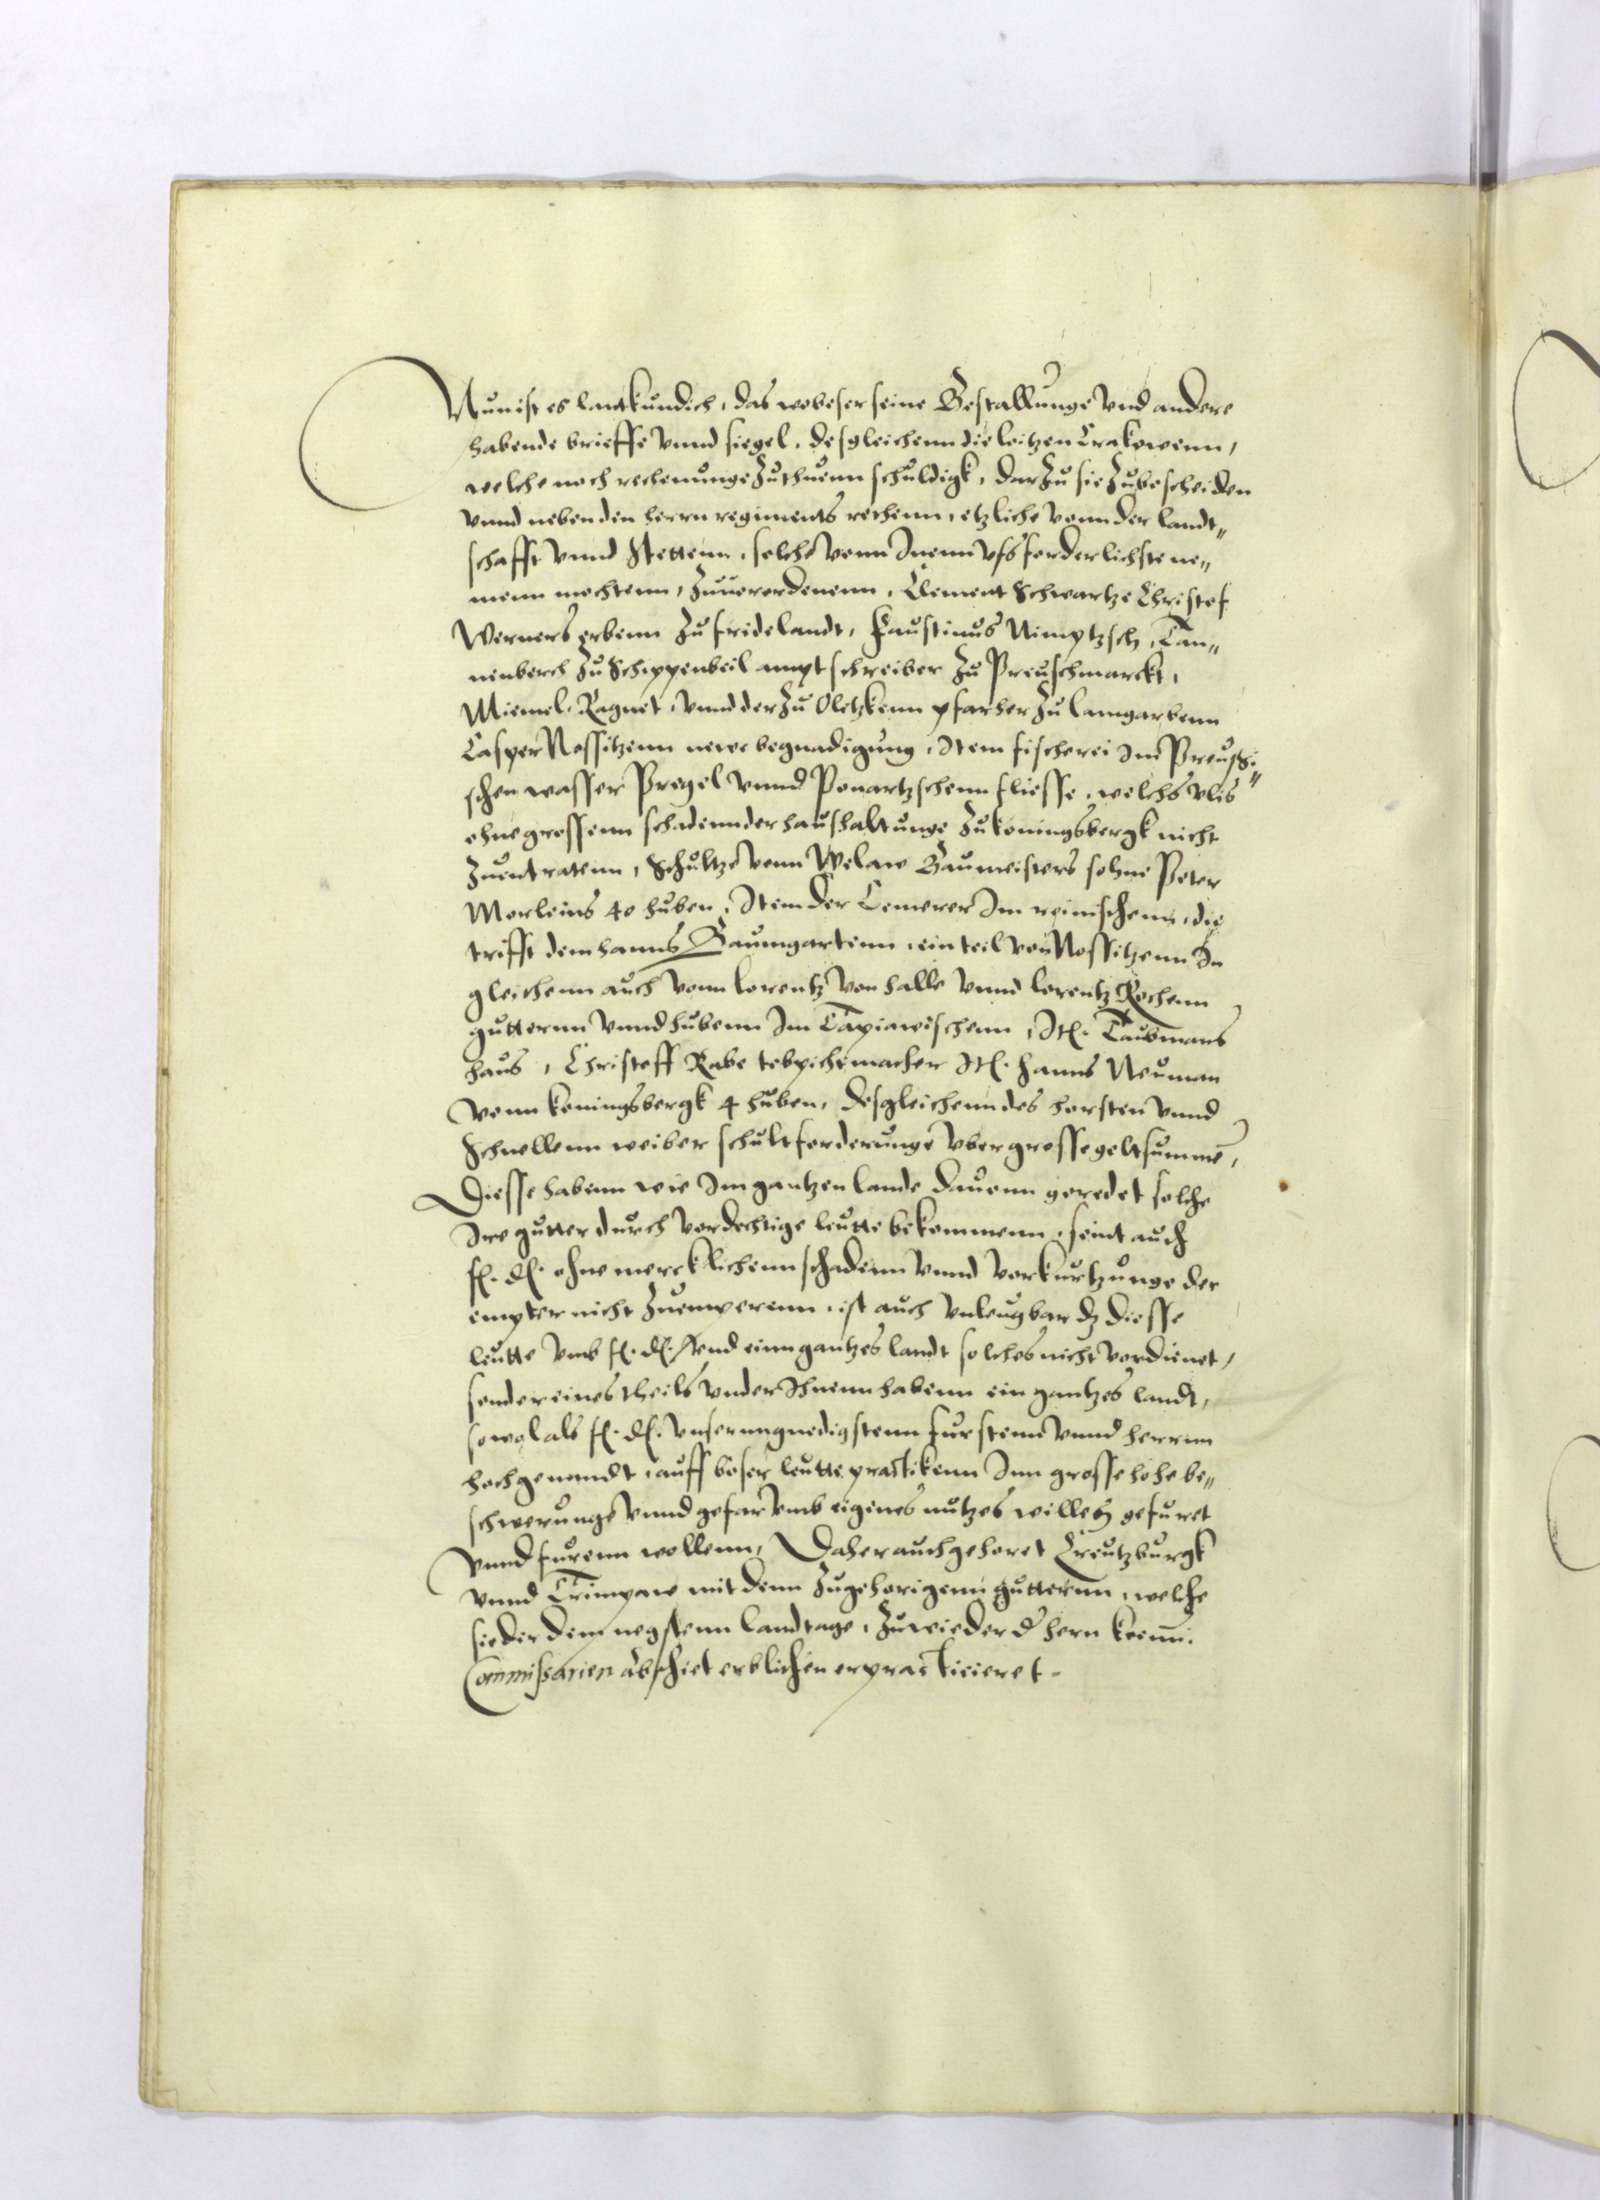 Nun ist es lantkundich, das wobeser seine Bestallunge vnd andere
habende brieffe vnnd siegel, desgleichenn die leitzen Crakowenn,
welche noch rechenunge zuthuenn schuldigk, dar zu sie zubescheiden
vnnd neben den herrn regiments rethenn, etzliche vonn der landt„
schafft vnnd Stettenn, solche vonn Inenn vfs forderlichste ne„
menn mochtenn, zuuerordenenn, Clement Schwartze Christof
Werners erbenn zu fridelandt, Faustinus Nimptzsch, Tan„
nenberch zu Schippenbeil ampt schreiber zu Preuschmarckt,
Miemel, Ragnet, vnnd der zu Oletzkenn pfarher zu lamgarbenn
Casper Nossitzenn newe begnadigung, Item fischerei im Preussi„
schen wasser Pregel vnnd Ponartzschenn fliesse, welchs
ohne grossenn schadenn der haushaltunge zu koningsbergk nicht
zuentratenn, Schultze vonn Welaw Baumeisters sohne Peter
Morleins 40 huben, Item der Cemerer im reinischenn, die
trifft dem hanns Baumgartenn, ein teil von Nossitzenn In
gleichenn auch vonn lorentz von halle vnnd lorentz Rochenn
gutternn vnnd hubenn im Tapiawischenn, Itē. Taubmans
haus, Christoff Rabe tebpichtmacher Itē. hanns Neuman
vonn koningsbergk 4 huben, desgleichenn des horsten vnnd
Schnellenn weiber schultforderunge vber grosse geltsumme,
Diesse habenn wie im gantzen lande dauonn geredet solche
Ire gutter durch vordechtige leutte bekommenn, seint auch
f. d. ohne mercklichenn schadenn vnnd vorkurtzunge der
empter nicht zuemperenn, ist auch vnleugbar dz diesse
leutte vmb f. d. vnd einn gantzes landt solches nicht vordienet,
sonder eines theils vnder Ihnenn habenn ein gantzes landt,
sowol als f. d. vnserenn gnedigstenn furstenn vnnd herrnn
hochgenandt, auff boser leutte practikenn Inn grosse hohe be„
schwerunge vnnd gefar vmb eigines nutzes willen gefuret
vnnd furenn wollenn, Daher auch gehoret Creutzburgk
vnnd Crimpaw mit denn zugehorigenn gutternn, welche
sieder dem negstenn landtage, zuwieder d hern
Commissarien abschiet erblichen erpracticieret.